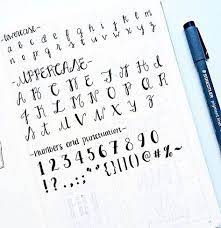 -lowercase-
a b c d e f g h i j k l m
n o p q r s t u v w x y z
-UPPERCASE-
A B C D E F G H I
J K L M N O P Q R
S T U V W X Y Z
-numbers and punctuation-
1 2 3 4 5 6 7 8 9 0
STAEDTLER